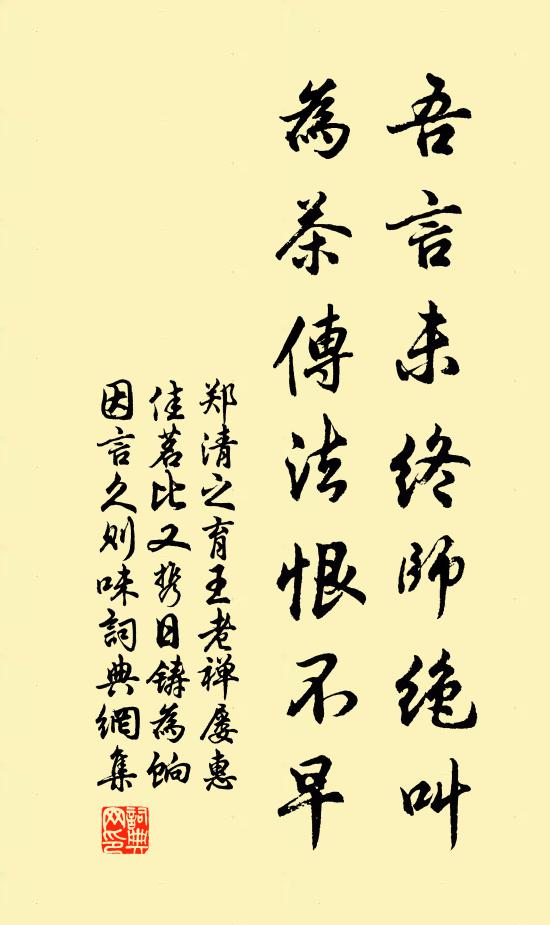 吾言未终師绝叫
為茶傳法恨不早
郑清之育王老禅屡惠
佳茗比又携日铸為饷
因言久则味詞典網集
詞典网印